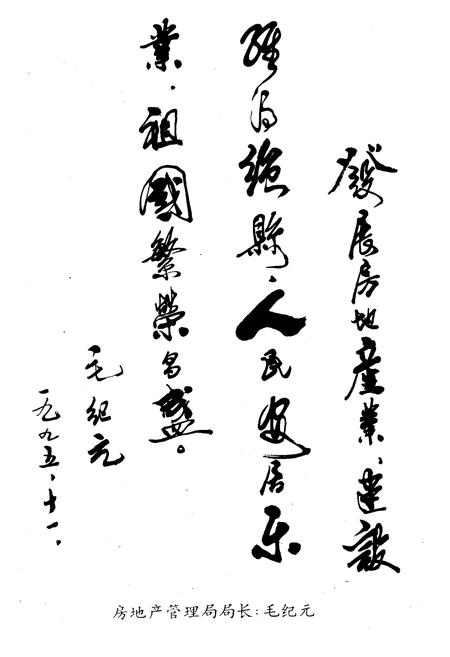 發展房地產業、建設
經濟强縣、人民安居乐
業、祖國繁榮昌盛。
毛紀元
一九九五、十一、
房地产管理局局长：毛纪元